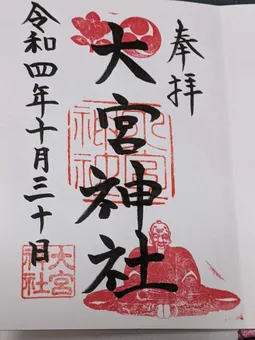 奉拝
大宮神社
令和四年十月三十日
大宮
神社
大宮
神社